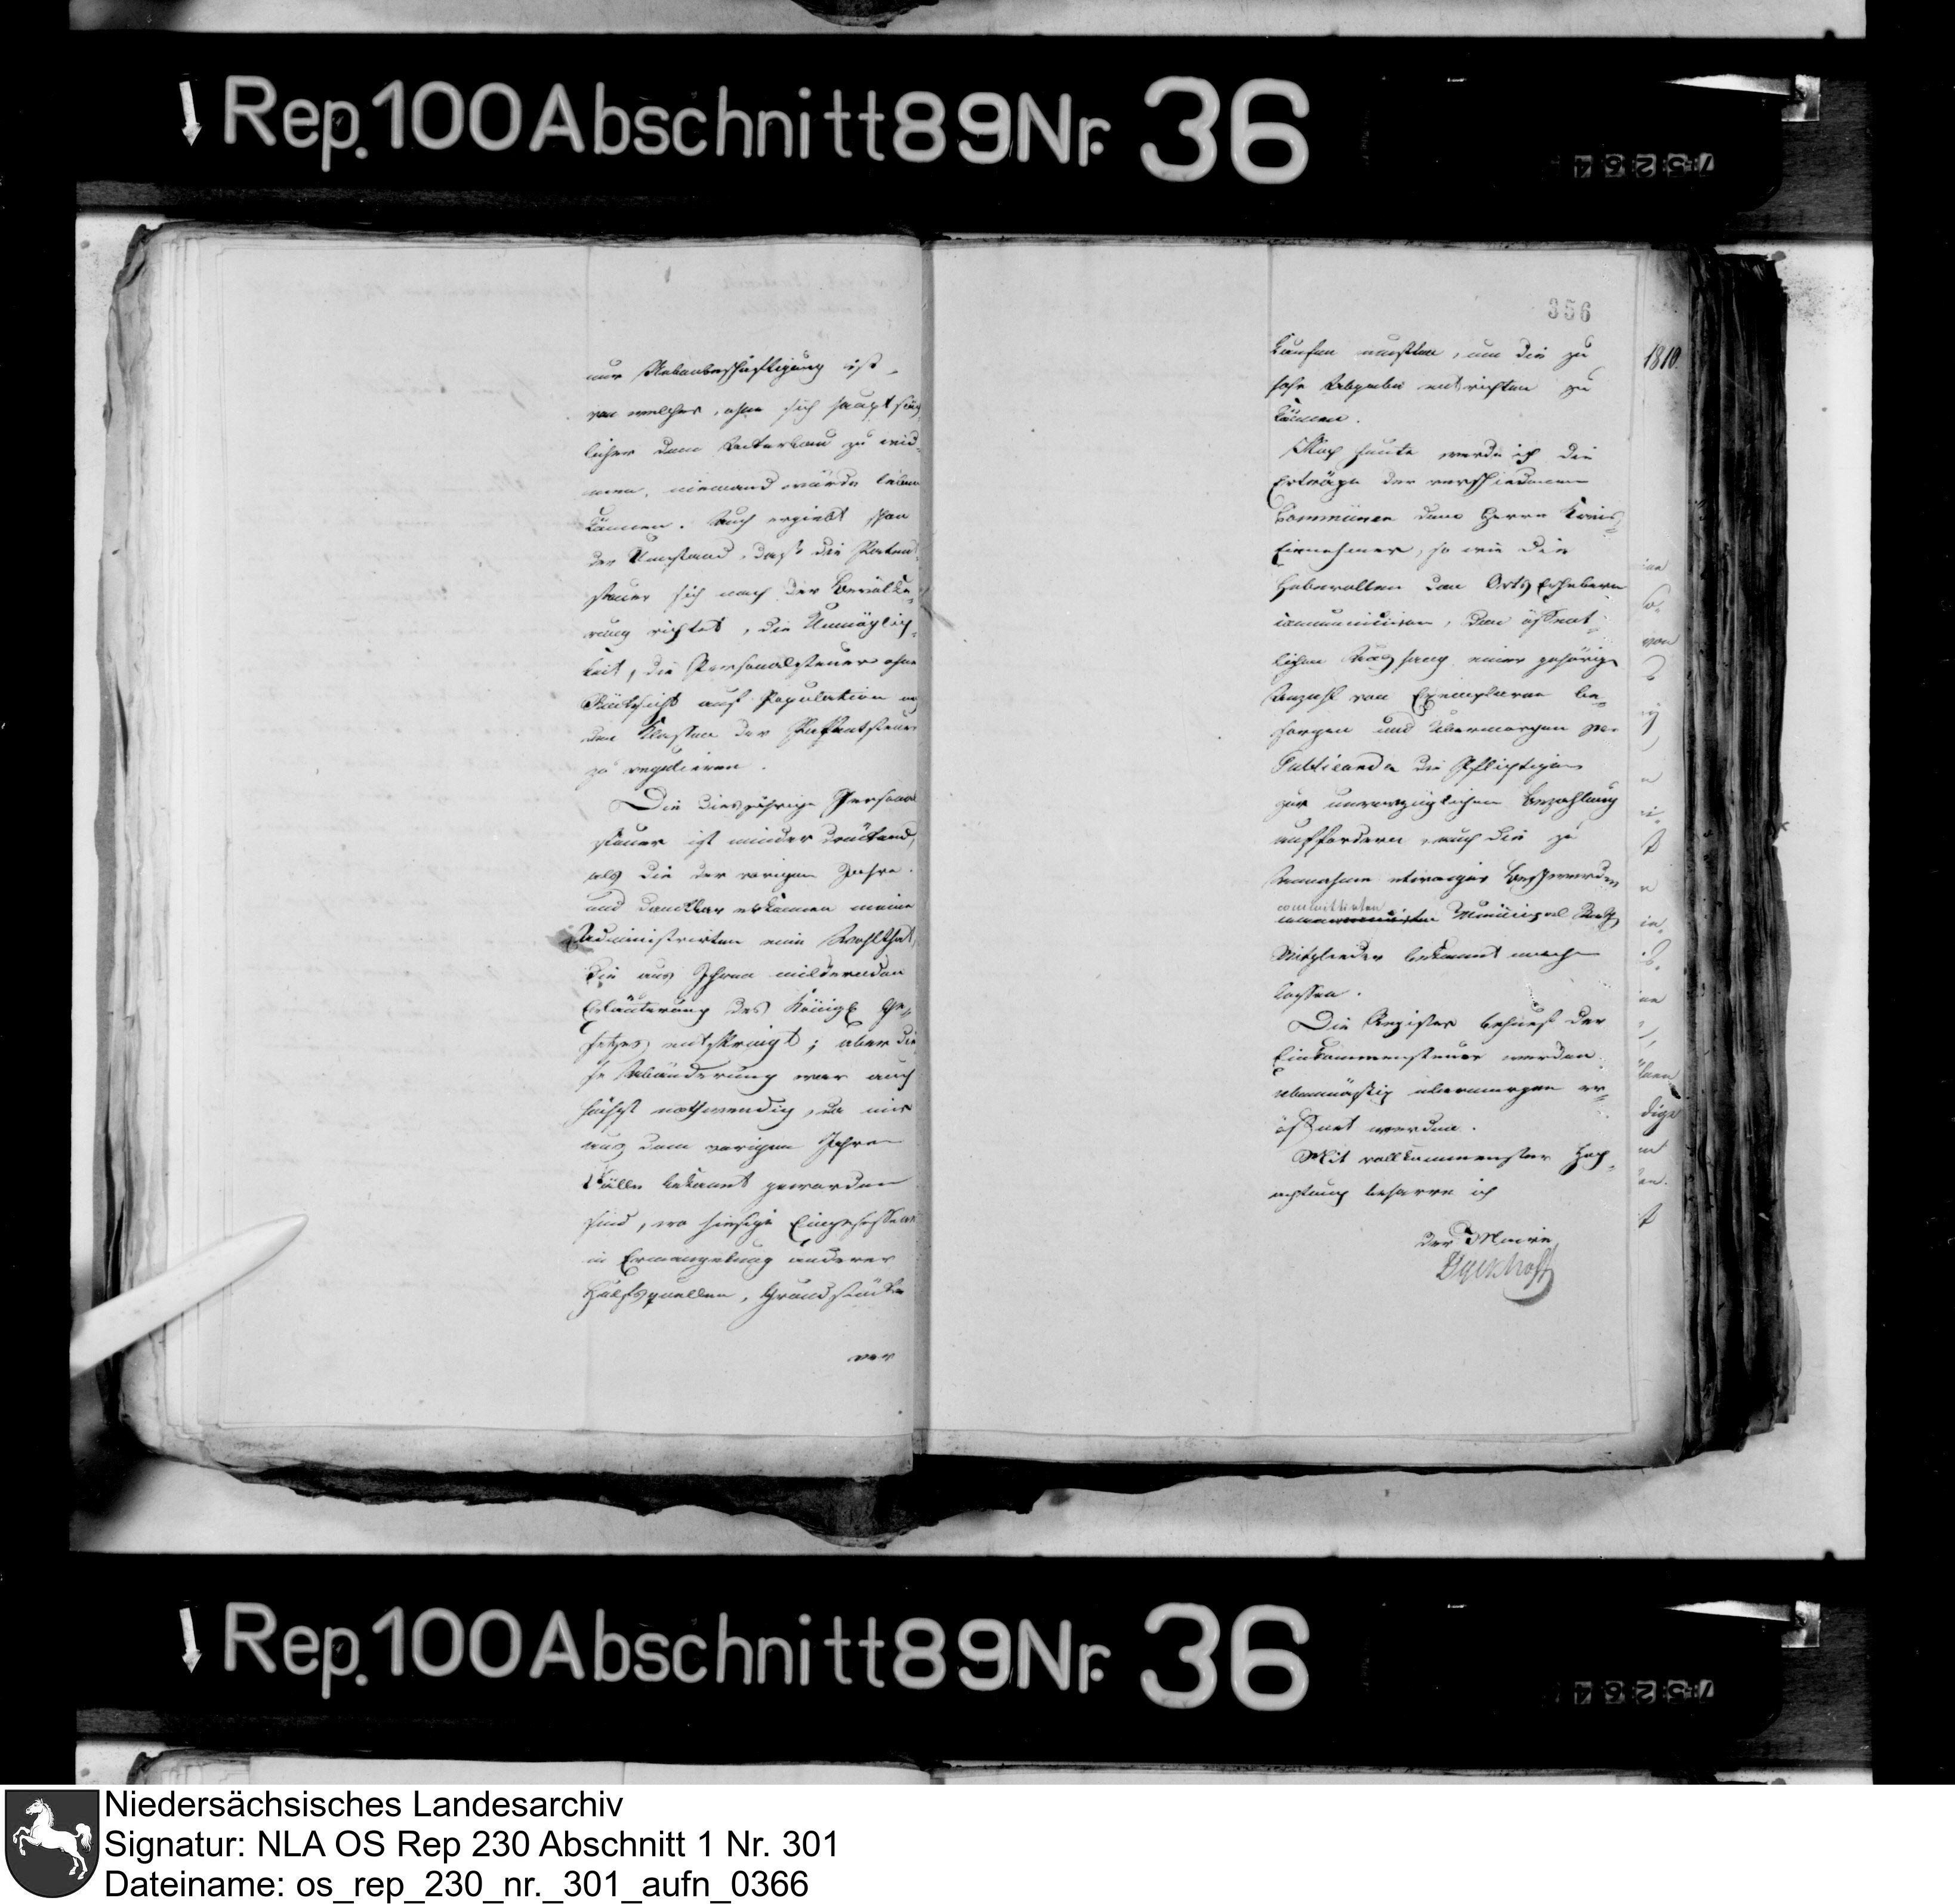 Rep. 100 Abschnitt 89 Nr. 36
75264
nur Nebenbeschäftigung ist,
von welcher, ohne sich haupt säch
licher dem Ackerbau zu wid¬
men, niemand würde leben
können. Auch ergiebt schon
der Umstand, daß die Patent
steuer sich nach der Bevölke¬
rung richtet, die Unmöglich¬
keit, die Personalsteuer ohne
Rücksicht auf Population u
den Klassen der Patentsteuer
zu regulieren.
Die diesjährige Personal
steuer ist minder drückend,
als die der vorigen Jahre.
und dankbar erkennen meine
Administrirten eine Wohlthat,
die aus Ihren mildernden
Erläuterung des Königl Ge¬
setzes entspringt; aber die
se Abänderung war auch
höchst nothwendig, da mir
aus dem vorigen Jahren
Fälle bekannt geworden
sind, wo hiesige Eingesessene
in Ermangelung anderer
Hülfsquellen, Grundstücke
ver
356
kaufen mußten, um die zu
hohe Abgabe entrichten zu
können.
Noch heute werde ich die
Erträge der verschiedenen
Commünen dem Herrn Kreis¬
Einnehmer, so wie die
Heberollen den Orts Erhebern
communiciren, den öffent¬
lichen Aushang einer gehörigen
Anzahl von Exemplaren be¬
sorgen und übermorgen per
Publicanda die Pflichtigen
zur unverzüglichen Bezahlung
auffordern, auch die zu
Annahme etwaiger Beschwerden
committirten
Municipal Raths
Mitglieder bekannt machen
lassen.
Die Register behuf der
Einkommensteuer werden
ebenmäßig übermorgen er¬
öffnet werden.
Mit vollkommenster Hoch¬
achtung beharre ich
der Maire
Dyckhoff
1810.
von
Rep. 100 Abschnitt 89 Nr. 36
75264
Niedersächsisches Landesarchiv
Signatur: NLA OS Rep 230 Abschnitt 1 Nr. 301
Dateiname: os_rep_230_nr._301_aufn_0366